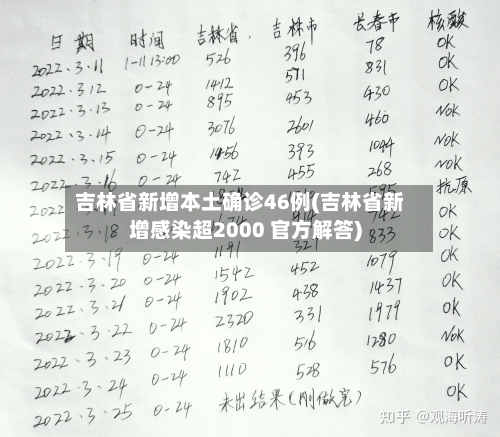 日期 时间 吉林省. 吉林市 长春市 核酸
2022.3.11 1-11 13:00 526 396 78 OK
2022.3.12 0-24 1412 571 831 OK
2022.3.13 0-24 895 453 430 OK
2022.3.14 0-24 3076 2601 460 NoK
2022.3.15 0-24 1456 393 1044 NoK
2022.3.16 0-24 742 455 268 NoK
595 抗原
吉林省新增本土确诊46例(吉林省新
增感染超2000 官方解答)
742 OK
2022.3.19 0-24 1191 321 833 OK
2022.3.20 0-24 1542 452 1079 OK
2022.3.21 0-24 1902 438 1437 OK
2022.3.22 0-24 2320 331 1979 OK
2022.3.23 0-24 1810 516 1280 NoK
2022.3.24 0-24 1110 528 576 OK
2022.3.25 0-24 未出结果(刚做完) OK
知乎 @观海听涛